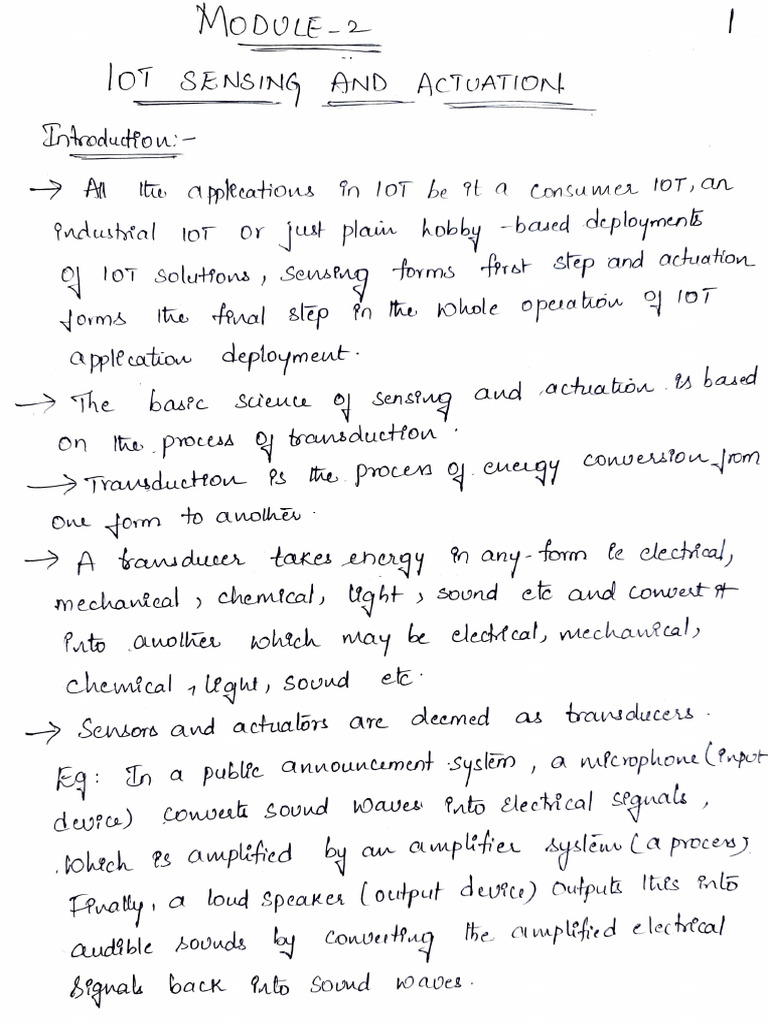 MODULE-2
1
IOT SENSING AND ACTUATION
Introduction:-
→ All the applications in IOT be it a consumer IOT, an
industrial IOT or just plain hobby-based deployments
of IOT solutions, sensing forms first step and actuation
forms the final step in the whole operation of IOT
application deployment.
→ The basic science of sensing and actuation is based
on the process of transduction.
→ Transduction is the process of energy conversion from
one form to another.
→ A transducer takes energy in any-form ie electrical,
mechanical, chemical, light, sound etc and convert it
into another which may be electrical, mechanical,
chemical, light, sound etc.
→ Sensors and actuators are deemed as transducers.
Eg: In a public announcement system, a microphone (input
device) converts sound waves into electrical signals,
which is amplified by an amplifier system (a process).
Finally, a loud speaker (output device) outputs this into
audible sounds by converting the amplified electrical
signals back into sound waves.